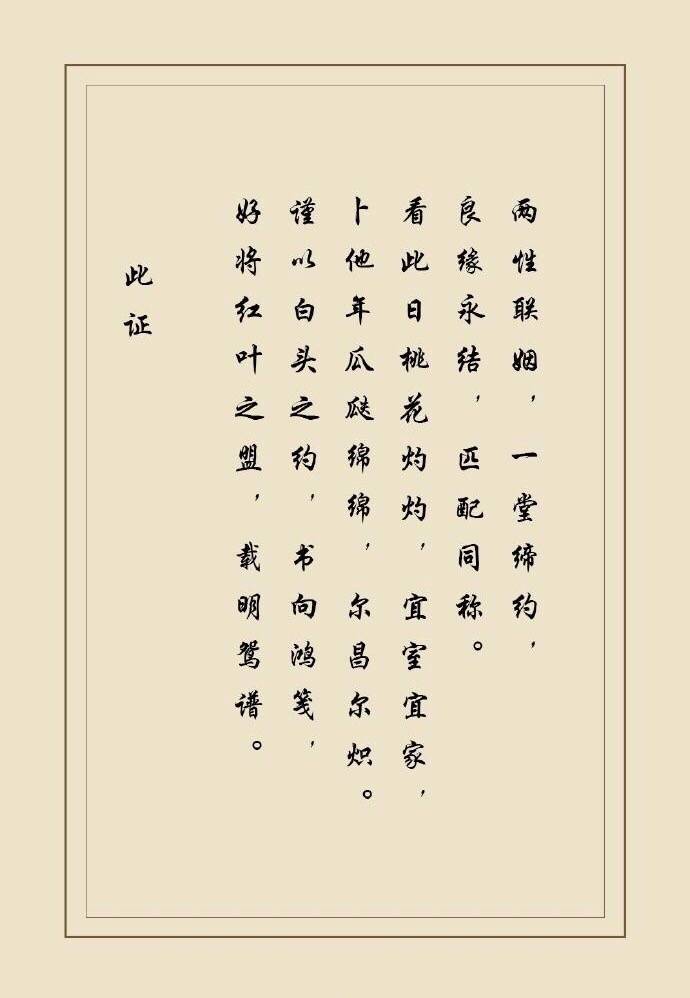 两性联姻，一堂缔约，
良缘永结，匹配同称。
看此日桃花灼灼，宜室宜家，
卜他年瓜瓞绵绵，尔昌尔炽。
谨以白头之约，书向鸿笺，
好将红叶之盟，载明鸳谱。
此证